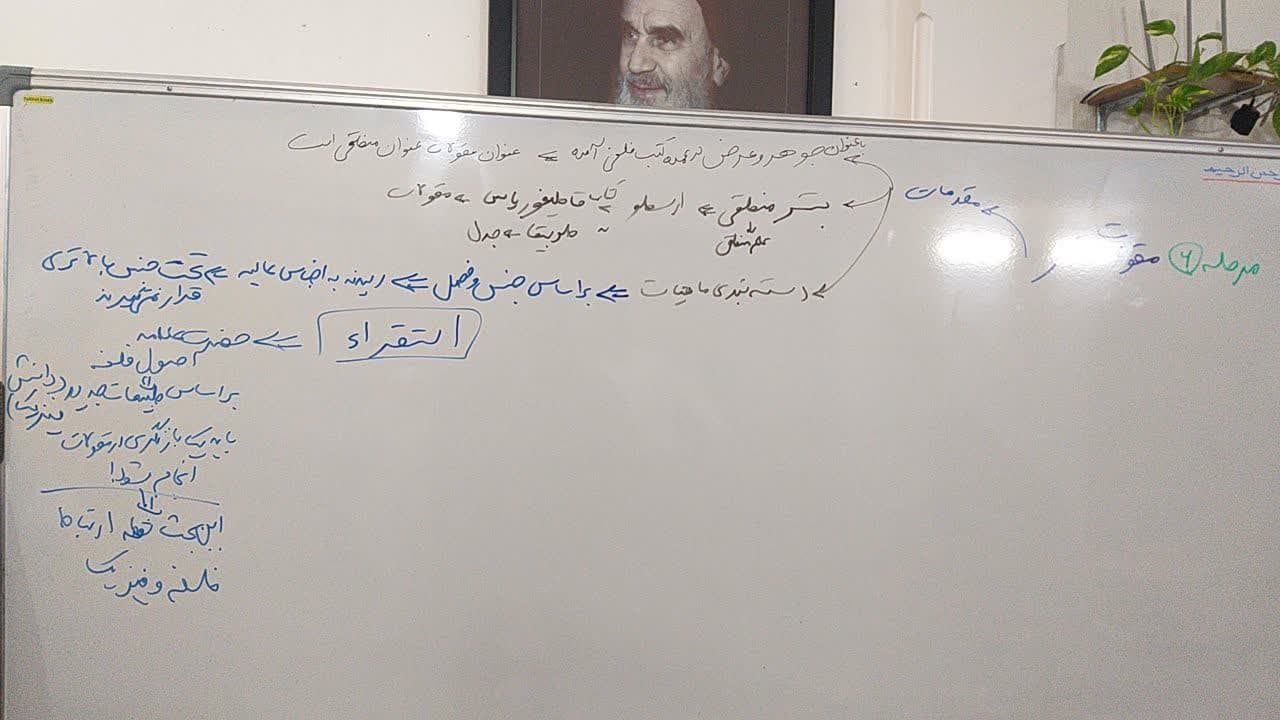 حمن الرحیم
مرحله ۶ مقولات عشر
مقدمات
با عنوان جوهر و عرض در عمده کتب فلسفی آمده ⇐ عنوان مقولات عنوان منطقی است
بستر منطقی ⇐ ارسطو ⇐ کتاب قاطیغوریاس ⇐ مقولات
علم منطق
طوبیقا ⇐ جدل
دسته بندی ماهیات ⇐ براساس جنس و فصل ⇐ رسیدند به اجناس عالیه ⇐ تحت جنس بالاتری
قرار نمی گیرند
استقراء ⇐ حضرت علامه
اصول فلسفه
براساس طبیعیات جدید (دانش
فیزیک)
باید یک بازنگری در مقولات
انجام شود!
این بحث نقطه ارتباط
فلسفه و فیزیک